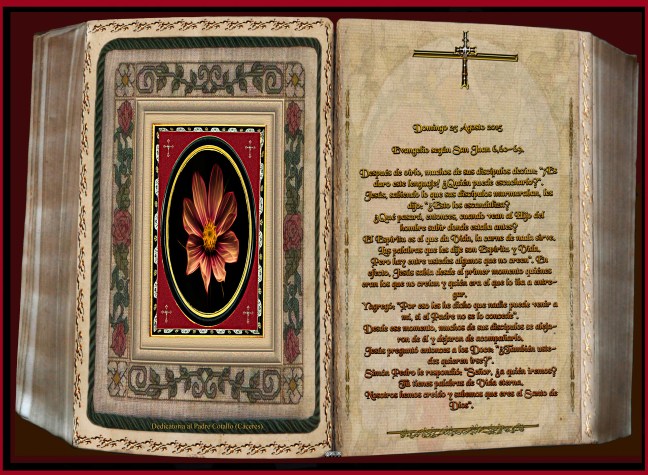 Dedicatoria al Padre Cotallo (Cáceres)
Domingo 23 Agosto 2015
Evangelio según San Juan 6,60-69.
Después de oírlo, muchos de sus discípulos decían: "¡Es
duro este lenguaje! ¿Quién puede escucharlo?".
Jesús, sabiendo lo que sus discípulos murmuraban, les
dijo: "¿Esto los escandaliza?
¿Qué pasará, entonces, cuando vean al Hijo del
hombre subir donde estaba antes?
El Espíritu es el que da Vida, la carne de nada sirve.
Las palabras que les dije son Espíritu y Vida.
Pero hay entre ustedes algunos que no creen". En
efecto, Jesús sabía desde el primer momento quiénes
eran los que no creían y quién era el que lo iba a entre-
gar.
Yagregó: "Por eso les he dicho que nadie puede venir a
mí, si el Padre no se lo concede".
Desde ese momento, muchos de sus discípulos se aleja-
ron de él y dejaron de acompañarlo.
Jesús preguntó entonces a los Doce: "¿También uste-
des quieren irse?".
Simón Pedro le respondió: "Señor, ¿a quién iremos?
Tú tienes palabras de Vida eterna.
Nosotros hemos creído y sabemos que eres el Santo de
Dios".